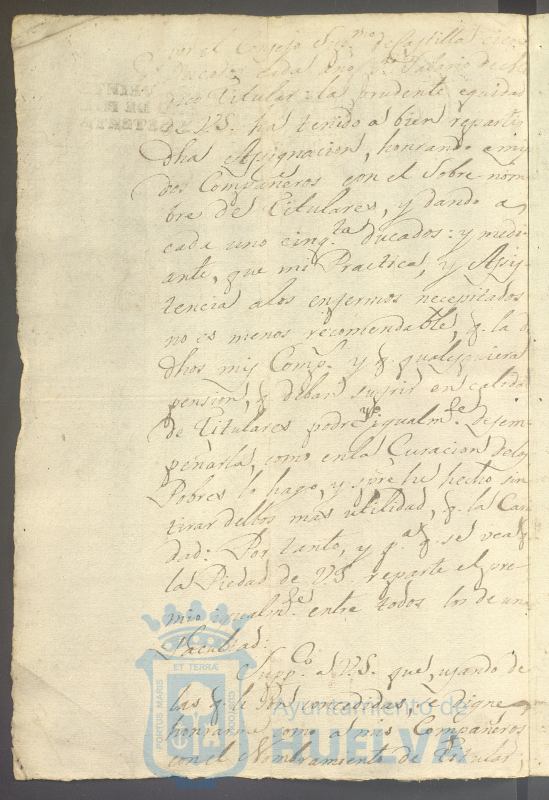 por el Consejo Sup.mo de Castilla cien
Ducados cada año p.r Salario de Me
dico Titular: la prudente equidad
de V.S. ha tenido a bien repartir
dha Asignacion, honrando a mis
dos Compañeros con el Sobre nom
bre de Titulares, y dando a
cada uno cinq.ta ducados: y medi
ante, que mi Practica, y Asis
tencia a los enfermos necesitados
no es menos recomendable, q. la d
dhos mis Comp.s y q. qualesquiera
pension, q. deban sufrir en calida
de Titulares podre yo igualm.te desem
peñarla, como en la Curacion de los
Pobres lo hago, y spre he hecho sin
tirar dellos mas utilidad, q. la Cari
dad: Por tanto, y p.a q. se vea q.
la Piedad de V.S. reparte el pre
mio igualm.te entre todos los de una
Facultad.
Supp.co a V.S. que, usando de
las q. le son concedidas, se digne
honrarme como a mis Compañeros
con el Nombramiento de Titular,
PORTUS MARIS ET TERRÆ CUSTODIA
Ayuntamiento de
HUELVA